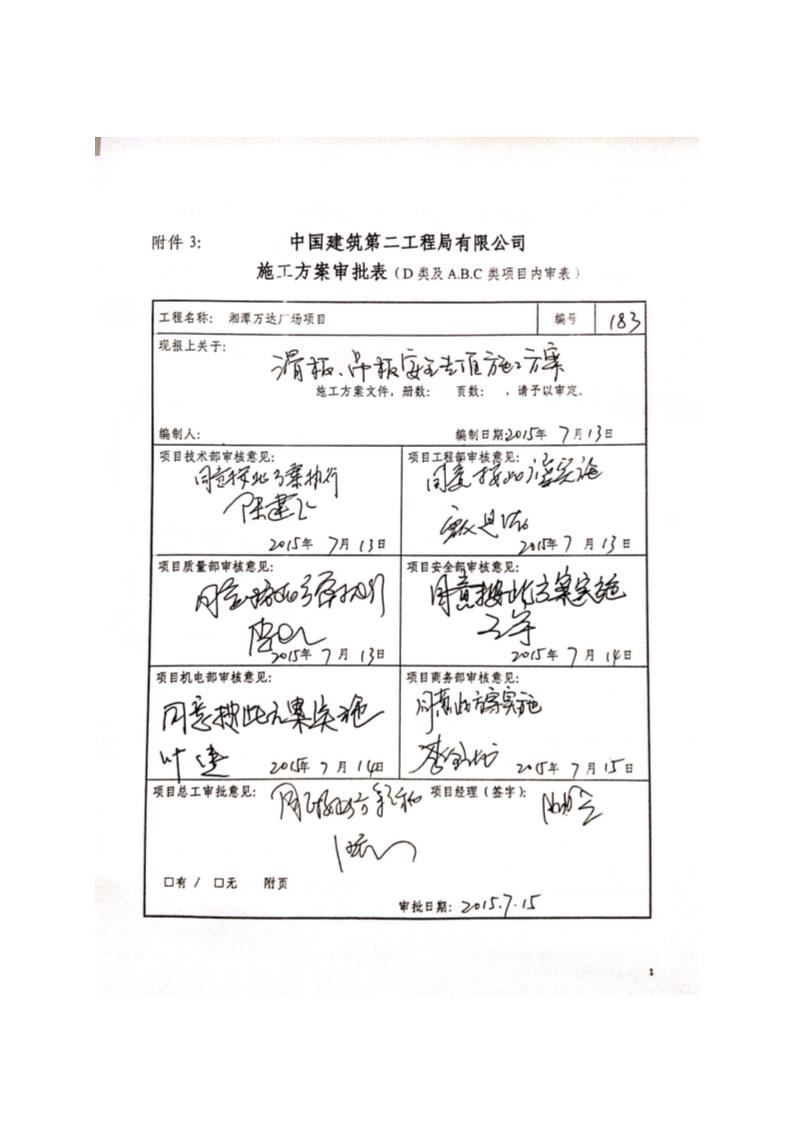 附件 3:
中国建筑第二工程局有限公司
施工方案审批表（D 类及 A.B.C 类项目内审表）
工程名称: 湘潭万达广场项目 编号 183
现报上关于:
滑板、吊板安全专项施工方案
施工方案文件，册数: 页数: ，请予以审定。
编制人: 编制日期 2015年 7月13日
项目技术部审核意见:
同意按此方案执行
陈建飞
2015年 7月13日
项目工程部审核意见:
同意按此方案实施
2015年 7月13日
项目质量部审核意见:
同意按此方案执行
2015年 7月13日
项目安全部审核意见:
同意按此方案实施
2015年 7月14日
项目机电部审核意见:
同意按此方案实施
叶
2015年 7月14日
项目商务部审核意见:
同意此方案实施
李
2015年 7月15日
项目总工审批意见:
同意按此方案
项目经理（签字）:
□有 / □无 附页
审批日期: 2015.7.15
1